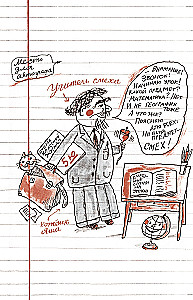 Место
для
автографа
Учитель смеха
Внимание!
Звонок!
Начинаем урок!
Какой предмет?
Математика? Нет
И не география
тоже
А что же?
Поясню
для всех:
предмет -
СМЕХ!
котёнок
Яша